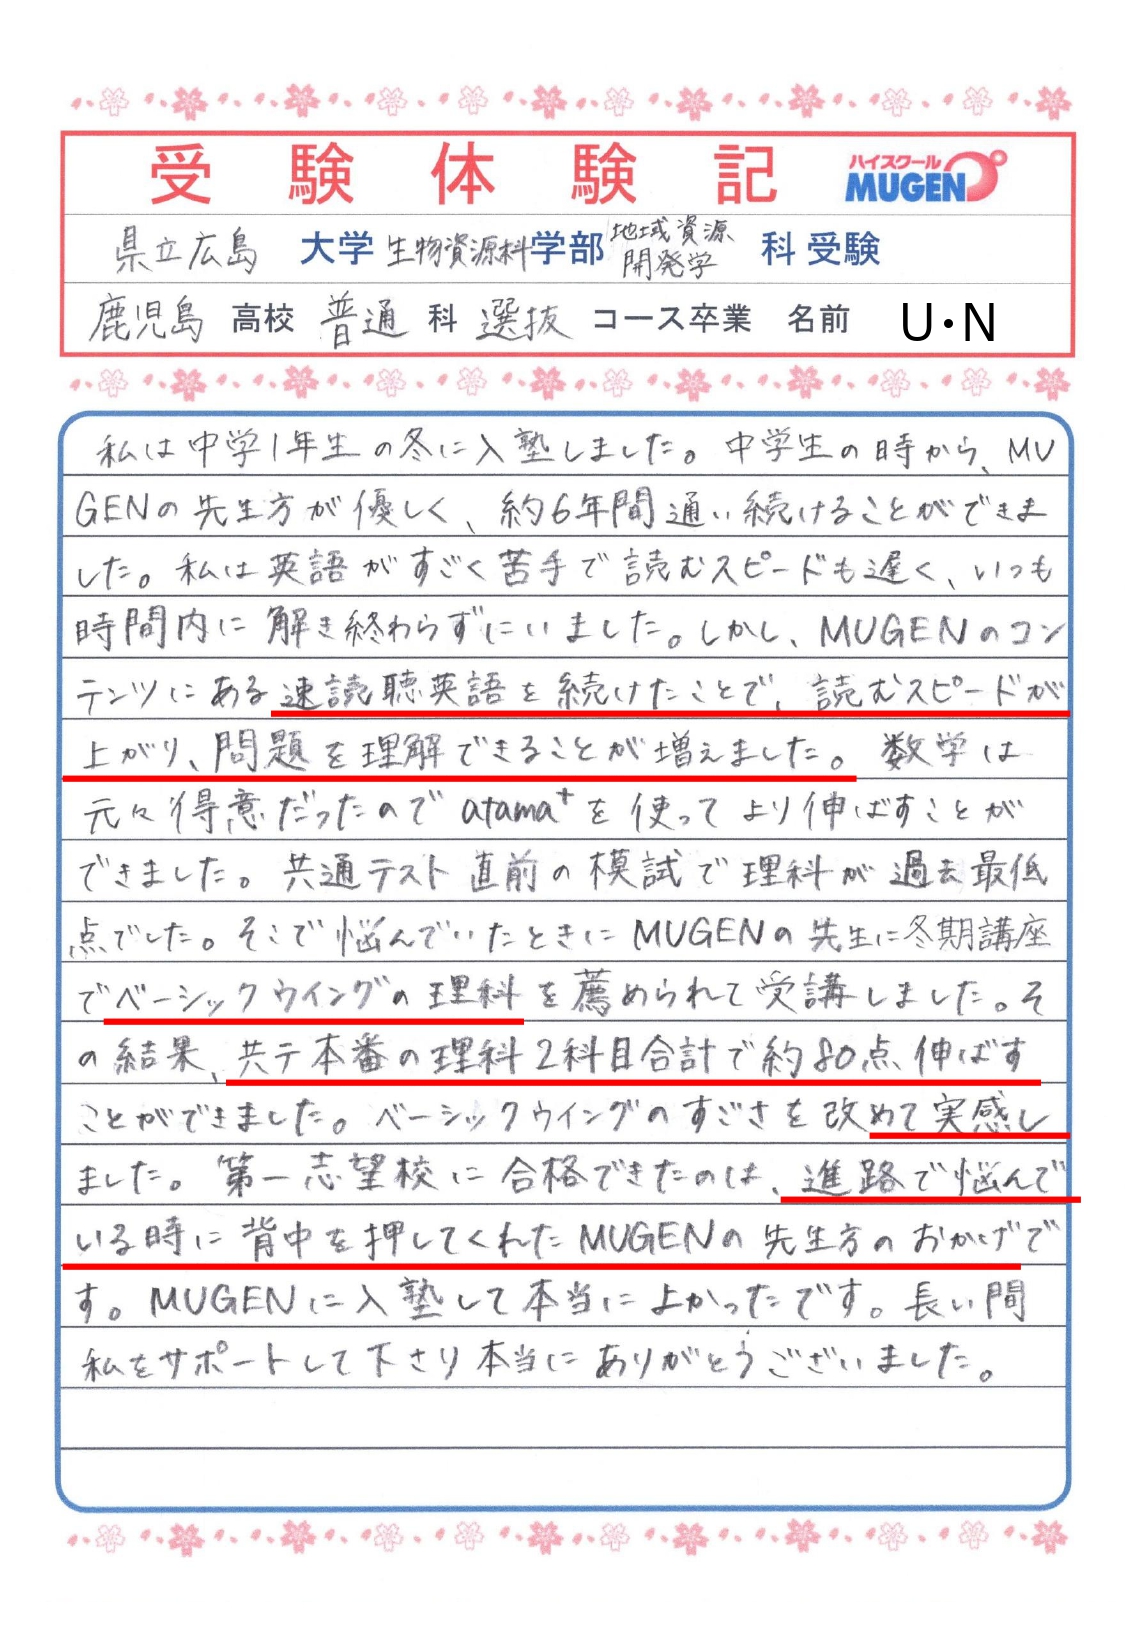 受験体験記
ハイスクール
MUGEN
県立広島 大学 生物資源科 学部 地域資源開発学 科 受験
鹿児島 高校 普通 科 選抜 コース卒業 名前 U・N
私は中学1年生の冬に入塾しました。中学生の時から、MU
GENの先生方が優しく、約6年間通い続けることができま
した。私は英語がすごく苦手で読むスピードも遅く、いつも
時間内に解き終わらずにいました。しかし、MUGENのコン
テンツにある速読聴英語を続けたことで、読むスピードが
上がり、問題を理解できることが増えました。数学は
元々得意だったのでatama+を使ってより伸ばすことが
できました。共通テスト直前の模試で理科が過去最低
点でした。そこで悩んでいたときにMUGENの先生に冬期講座
でベーシックウイングの理科を薦められて受講しました。そ
の結果、共テ本番の理科2科目合計で約80点伸ばす
ことができました。ベーシックウイングのすごさを改めて実感し
ました。第一志望校に合格できたのは、進路で悩んで
いる時に背中を押してくれたMUGENの先生方のおかげで
す。MUGENに入塾して本当によかったです。長い間
私をサポートして下さり本当にありがとうございました。